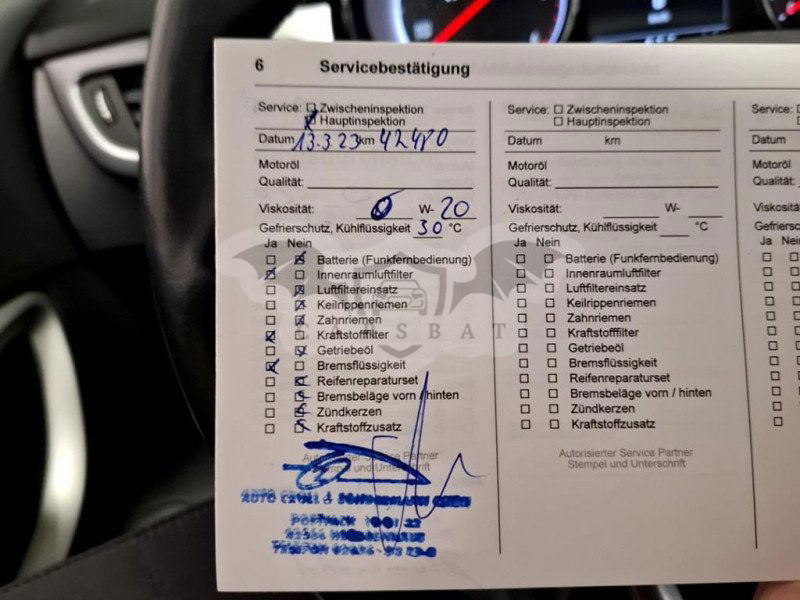 6 Servicebestätigung
Service: Zwischeninspektion
Hauptinspektion
Datum 13.3.23 km 42480
Motoröl
Qualität:
Viskosität: 0 W- 20
Gefrierschutz, Kühlflüssigkeit 30 °C
Ja Nein
Batterie (Funkfernbedienung)
Innenraumluftfilter
Luftfiltereinsatz
Keilrippenriemen
Zahnriemen
Kraftstofffilter
Getriebeöl
Bremsflüssigkeit
Reifenreparaturset
Bremsbeläge vorn / hinten
Zündkerzen
Kraftstoffzusatz
Autorisierter Service Partner
Stempel und Unterschrift
AUTO
POSTFACH
TELEFON
Service: Zwischeninspektion
Hauptinspektion
Datum km
Motoröl
Qualität:
Viskosität: W-
Gefrierschutz, Kühlflüssigkeit °C
Ja Nein
Batterie (Funkfernbedienung)
Innenraumluftfilter
Luftfiltereinsatz
Keilrippenriemen
Zahnriemen
Kraftstofffilter
Getriebeöl
Bremsflüssigkeit
Reifenreparaturset
Bremsbeläge vorn / hinten
Zündkerzen
Kraftstoffzusatz
Autorisierter Service Partner
Stempel und Unterschrift
Service:
Datum
Motoröl
Qualität:
Viskosität
Gefriersch
Ja Nein